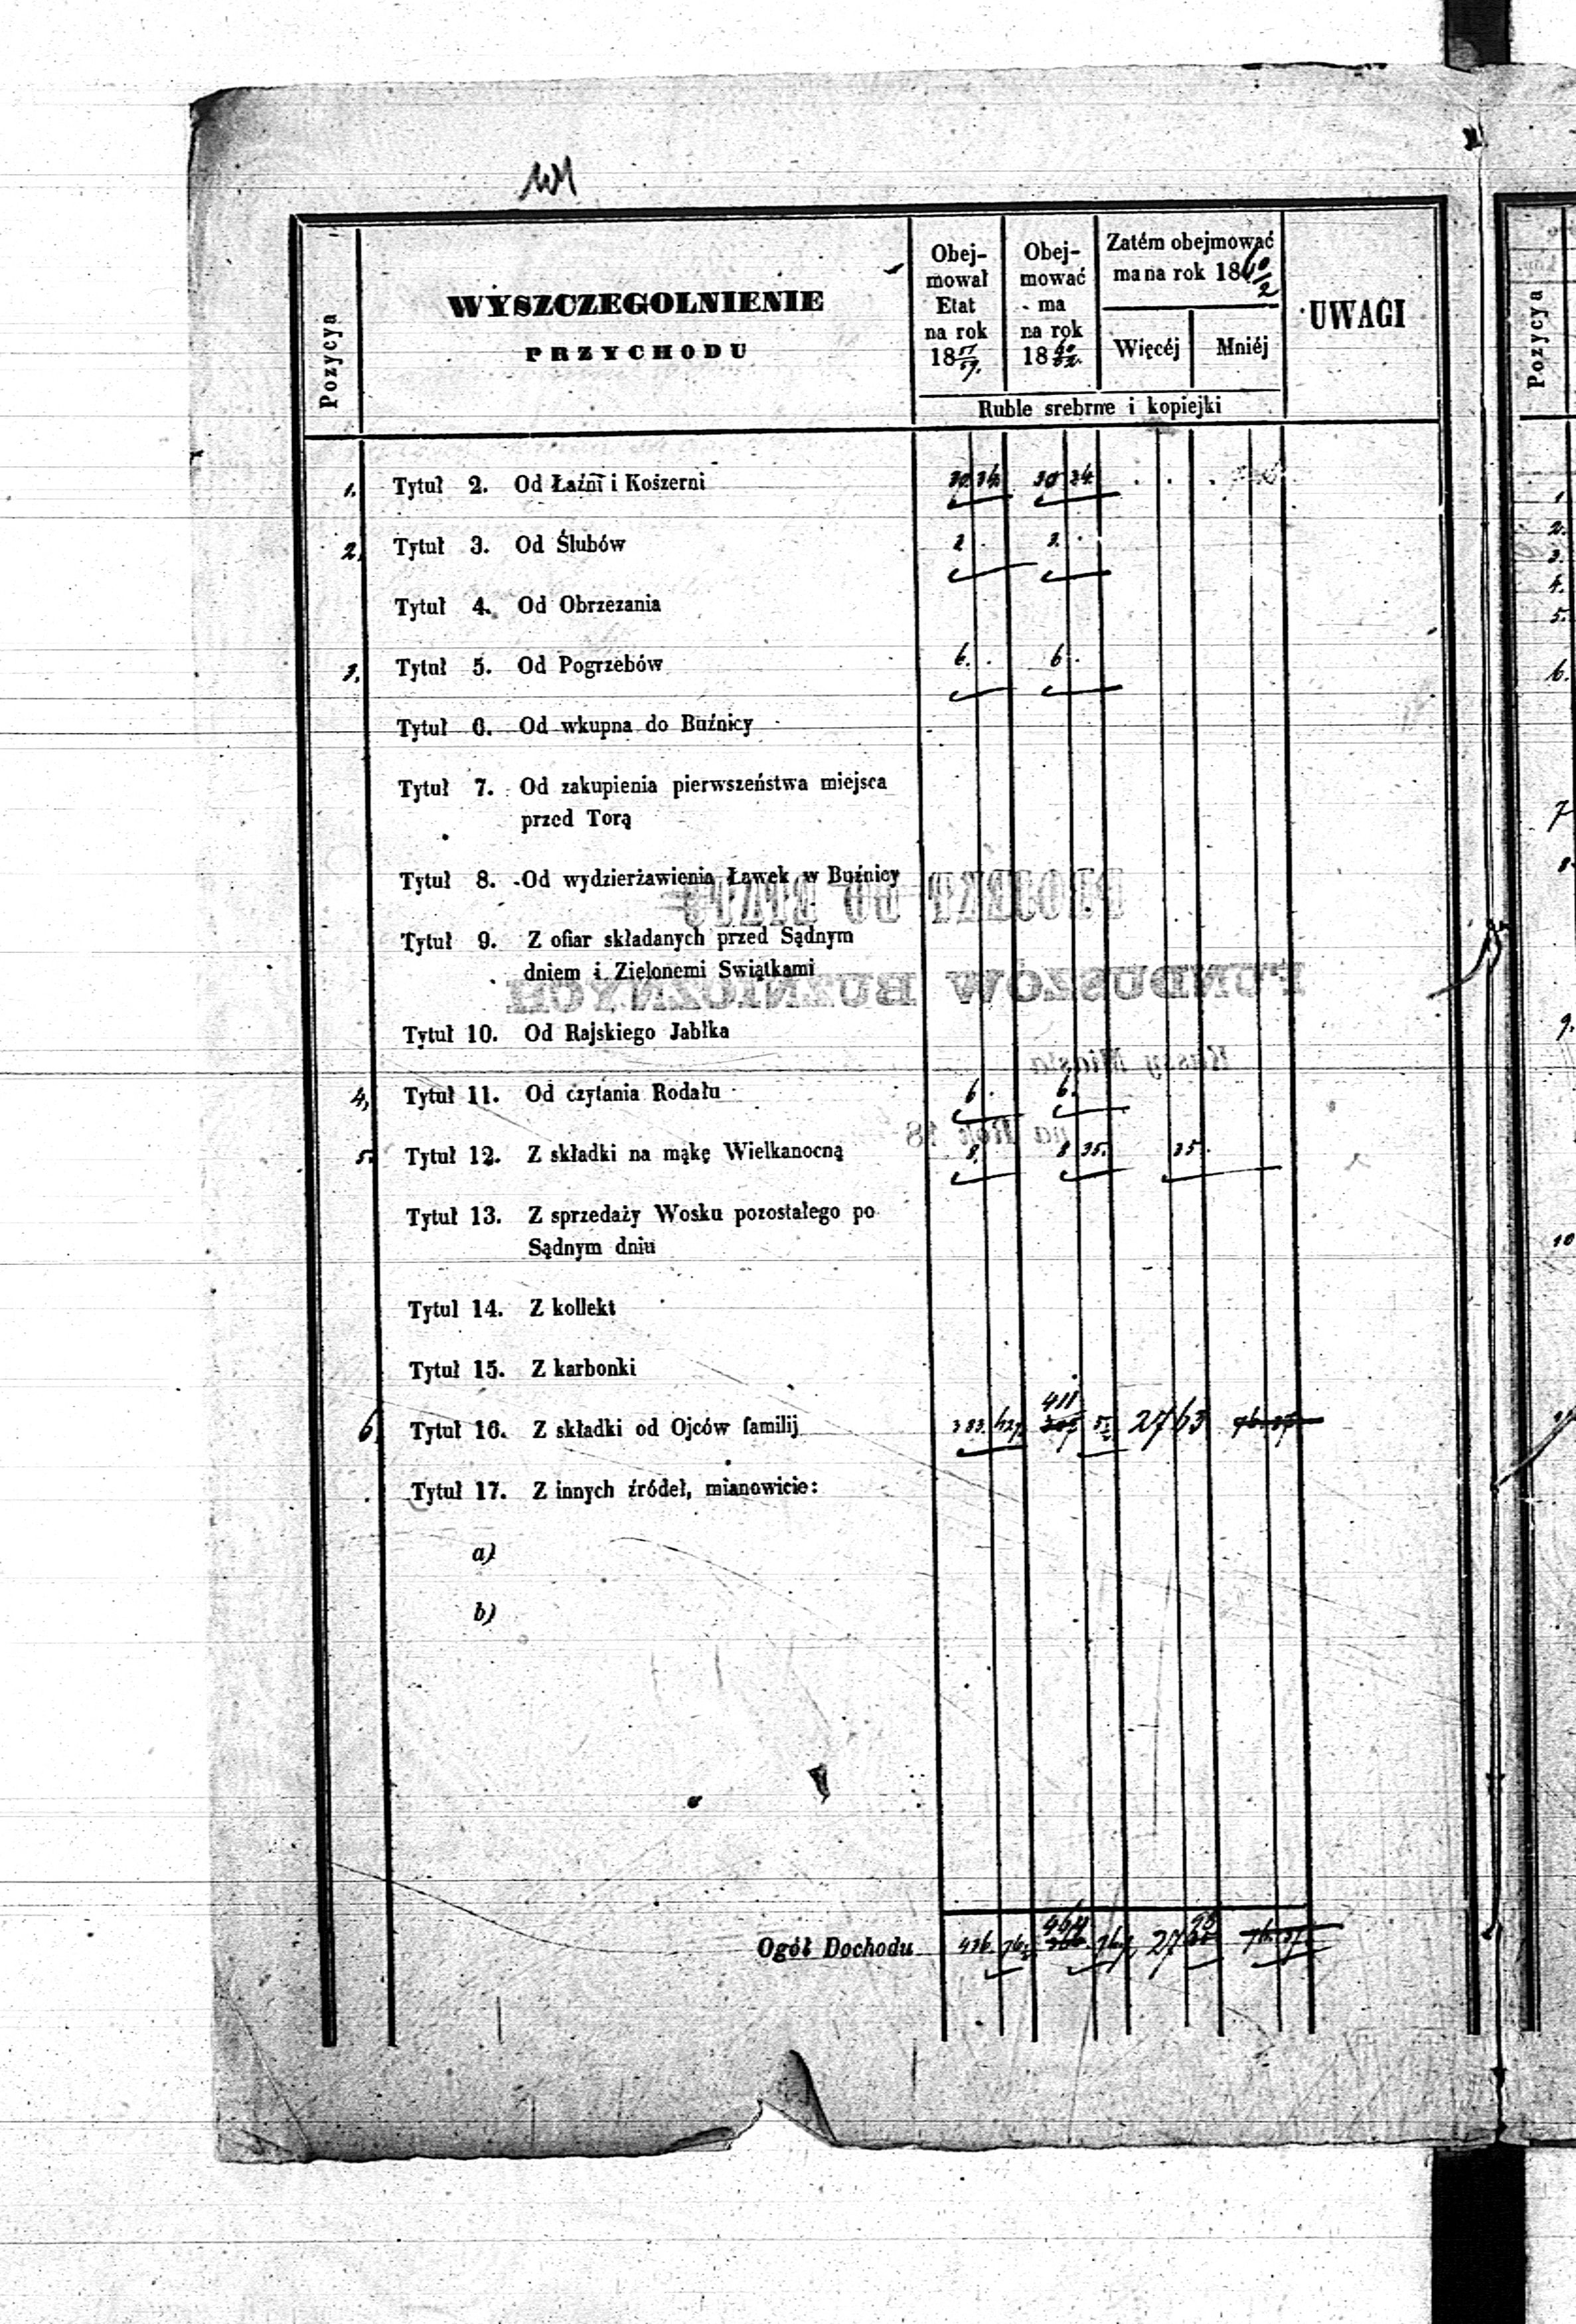 Pozycya
WYSZCZEGOLNIENIE
PRZYCHODU
Obej-
mował
Etat
na rok
18 57/59.
Obej-
mować
ma
na rok
18 60/62.
Zatém obejmować
ma na rok 18 60/2
Więcéj Mniéj
Ruble srebrne i kopiejki
UWAGI
1. Tytuł 2. Od Łaźni i Koszerni 30 34 30 34.
2. Tytuł 3. Od Ślubów 2 . 2 .
Tytuł 4. Od Obrzezania
3. Tytuł 5. Od Pogrzebów 6. . 6 .
Tytuł 6. Od wkupna do Buźnicy
Tytuł 7. Od zakupienia pierwszeństwa miejsca
przed Torą
Tytuł 8. Od wydzierżawienia Ławek w Buźnicy
Tytuł 9. Z ofiar składanych przed Sądnym
dniem i Zielonemi Swiątkami
Tytuł 10. Od Rajskiego Jabłka
4, Tytuł 11. Od czytania Rodału 6 . 6.
5. Tytuł 12. Z składki na mąkę Wielkanocną 8. 8 35. 35.
Tytuł 13. Z sprzedaży Wosku pozostałego po
Sądnym dniu
Tytuł 14. Z kollekt
Tytuł 15. Z karbonki
6 Tytuł 16. Z składki od Ojców familij 383. 411 27 63
Tytuł 17. Z innych źródeł, mianowicie:
a)
b)
Ogół Dochodu 436. 27
Pozycya
1
2.
3.
4.
5.
6.
7
8.
9.
10